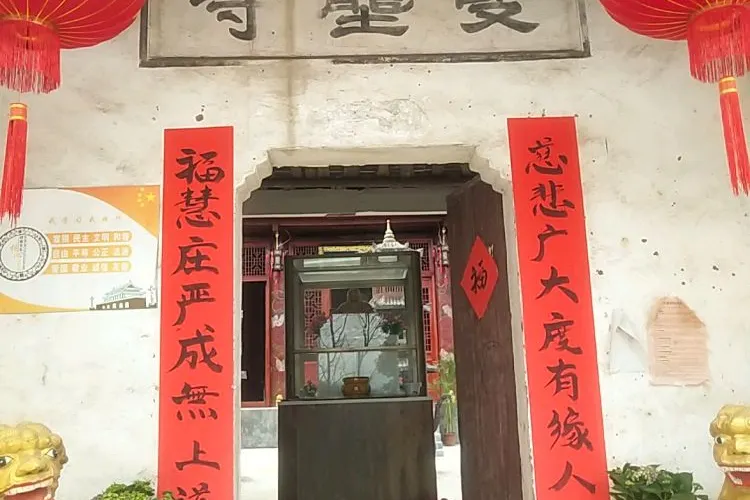 聖寺
慈悲广大度有缘人
福慧庄严成無上道
福
富强 民主 文明 和谐
自由 平等 公正 法治
爱国 敬业 诚信 友善